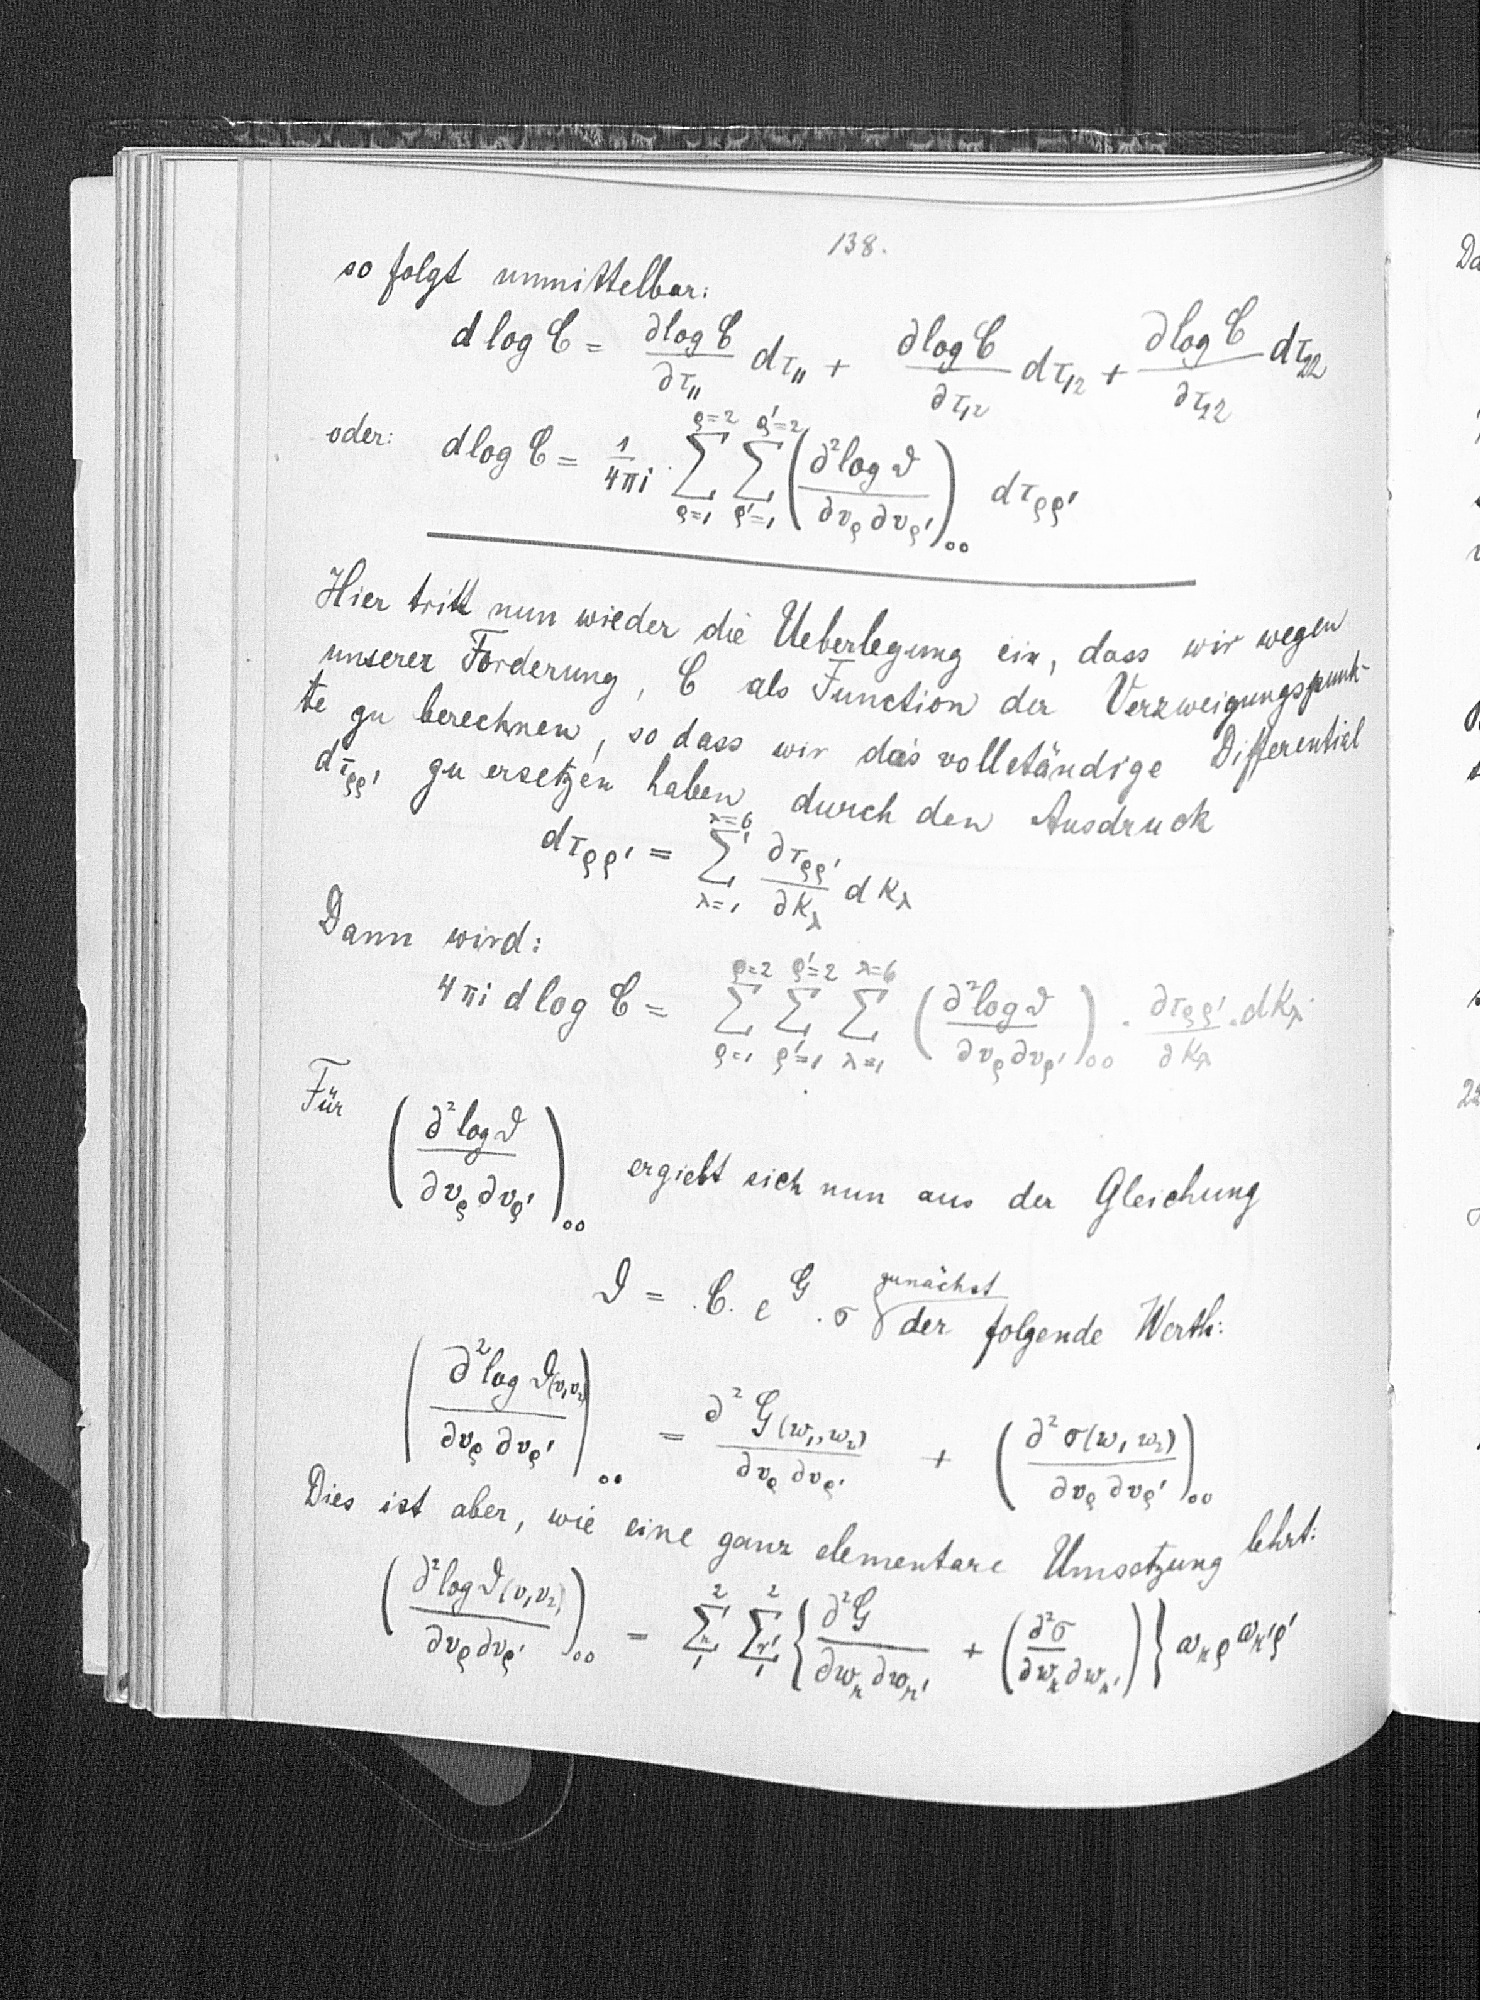 138.
so folgt unmittelbar:
d log C = ∂log C/∂τ₁₁ dτ₁₁ + ∂log C/∂τ₁₂ dτ₁₂ + ∂log C/∂τ₁₂ dτ₂₂
oder: d log C = 1/4πi · Σ_{ρ=1}^{ρ=2} Σ_{ρ'=1}^{ρ'=2} (∂²log ϑ/∂v_ρ ∂v_ρ')_{00} dτ_ρρ'
Hier tritt nun wieder die Ueberlegung ein, dass wir wegen
unserer Forderung, C als Function der Verzweigungspunk-
te zu berechnen, so dass wir das volletändige Differential
dτ_ρρ' zu ersetzen haben durch den Ausdruck
dτ_ρρ' = Σ_{λ=1}^{λ=6} ∂τ_ρρ'/∂k_λ dk_λ
Dann wird:
4πi d log C = Σ_{ρ=1}^{ρ=2} Σ_{ρ'=1}^{ρ'=2} Σ_{λ=1}^{λ=6} (∂²log ϑ/∂v_ρ ∂v_ρ')_{00} · ∂τ_ρρ'/∂k_λ · dk_λ
Für (∂²log ϑ/∂v_ρ ∂v_ρ')_{00} ergiebt sich nun aus der Gleichung
ϑ = C · e^G · σ zunächst der folgende Werth:
(∂²log ϑ(v₁,v₂)/∂v_ρ ∂v_ρ')_{00} = ∂²G(w₁,w₂)/∂v_ρ ∂v_ρ' + (∂²σ(w₁ w₂)/∂v_ρ ∂v_ρ')_{00}
Dies ist aber, wie eine ganz elementare Umsetzung lehrt:
(∂²log ϑ(v₁v₂)/∂v_ρ ∂v_ρ')_{00} = Σ_{κ 1}^{2} Σ_{κ' 1}^{2} {∂²G/∂w_κ ∂w_κ' + (∂²σ/∂w_κ ∂w_κ')} ω_κρ ω_κ'ρ'